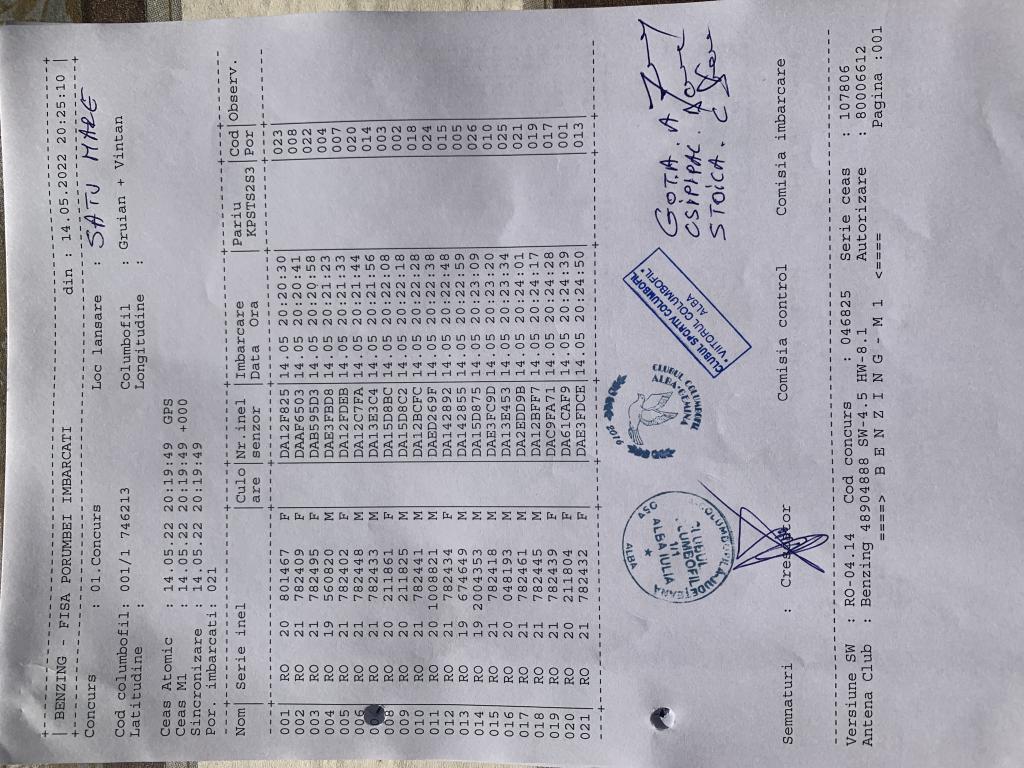 BENZING - FISA PORUMBEI IMBARCATI din : 14.05.2022 20:25:10
Concurs : 01.Concurs Loc lansare : SATU MARE
Cod columbofil: 001/1 746213 Columbofil : Gruian + Vintan
Latitudine : Longitudine :
Ceas Atomic : 14.05.22 20:19:49 GPS
Ceas M1 : 14.05.22 20:19:49 +000
Sincronizare : 14.05.22 20:19:49
Por. imbarcati: 021
Nom Serie inel Culo Nr.inel Imbarcare Pariu Cod Observ.
are senzor Data Ora KPSTS2S3 Por
001 RO 20 801467 F DA12F825 14.05 20:20:30 023
002 RO 21 782409 F DAAF6503 14.05 20:20:41 008
003 RO 21 782495 F DAB595D3 14.05 20:20:58 022
004 RO 19 560820 M DAE3FBD8 14.05 20:21:23 004
005 RO 21 782402 F DA12FDEB 14.05 20:21:33 007
006 RO 21 782448 M DA12C7FA 14.05 20:21:44 020
RO 21 782433 M DA13E3C4 14.05 20:21:56 014
008 RO 20 211861 F DA15D8BC 14.05 20:22:08 003
009 RO 20 211825 M DA15D8C2 14.05 20:22:18 002
010 RO 21 782441 M DA12BCFC 14.05 20:22:28 018
011 RO 20 1008821 M DAED269F 14.05 20:22:38 024
012 RO 21 782434 F DA142892 14.05 20:22:48 015
013 RO 19 674649 M DA142855 14.05 20:22:59 005
014 RO 19 2004353 M DA15D875 14.05 20:23:09 026
015 RO 21 782418 M DAE3FC9D 14.05 20:23:20 010
016 RO 20 048193 M DA13E453 14.05 20:23:34 025
017 RO 21 782461 M DA2EDD9B 14.05 20:24:01 021
018 RO 21 782445 M DA12BFF7 14.05 20:24:17 019
019 RO 21 782439 F DAC9FA71 14.05 20:24:28 017
020 RO 20 211804 F DA61CAF9 14.05 20:24:39 001
021 RO 21 782432 F DAE3FDCE 14.05 20:24:50 013
ALBA
CLUBUL
COLUMBOFIL
NR.1
ALBA IULIA
2016
CLUBUL COLUMBOFIL
ALBA-GEMINA
CLUBUL SPORTIV COLUMBOFIL
"VIITORUL COLUMBOFIL"
ALBA
GOTIA A
CSIPIPAL
STOICA. C
Semnaturi : Crescator Comisia control Comisia imbarcare
Versiune SW : RO-04.14 Cod concurs : 046825 Serie ceas : 107806
Antena Club : Benzing 48904888 SW-4.5 HW-8.1 Autorizare : 80006612
====> B E N Z I N G - M 1 <==== Pagina :001